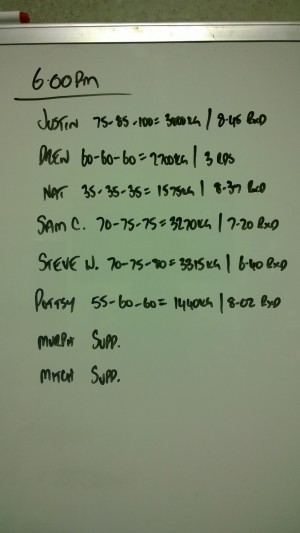 6:00pm
JUSTIN 75-85-100= 3000KG / 8.45 RXD
DREW 60-60-60= 2700KG / 3 RDS
NAT 35-35-35= 1575KG / 8-37 RXD
SAM C. 70-75-75= 3270KG / 7-20 RXD
STEVE W. 70-75-80= 3315KG / 6-40 RXD
POTTSY 55-60-60= 1440KG / 8-02 RXD
MURPH SUPP.
MITCH SUPP.